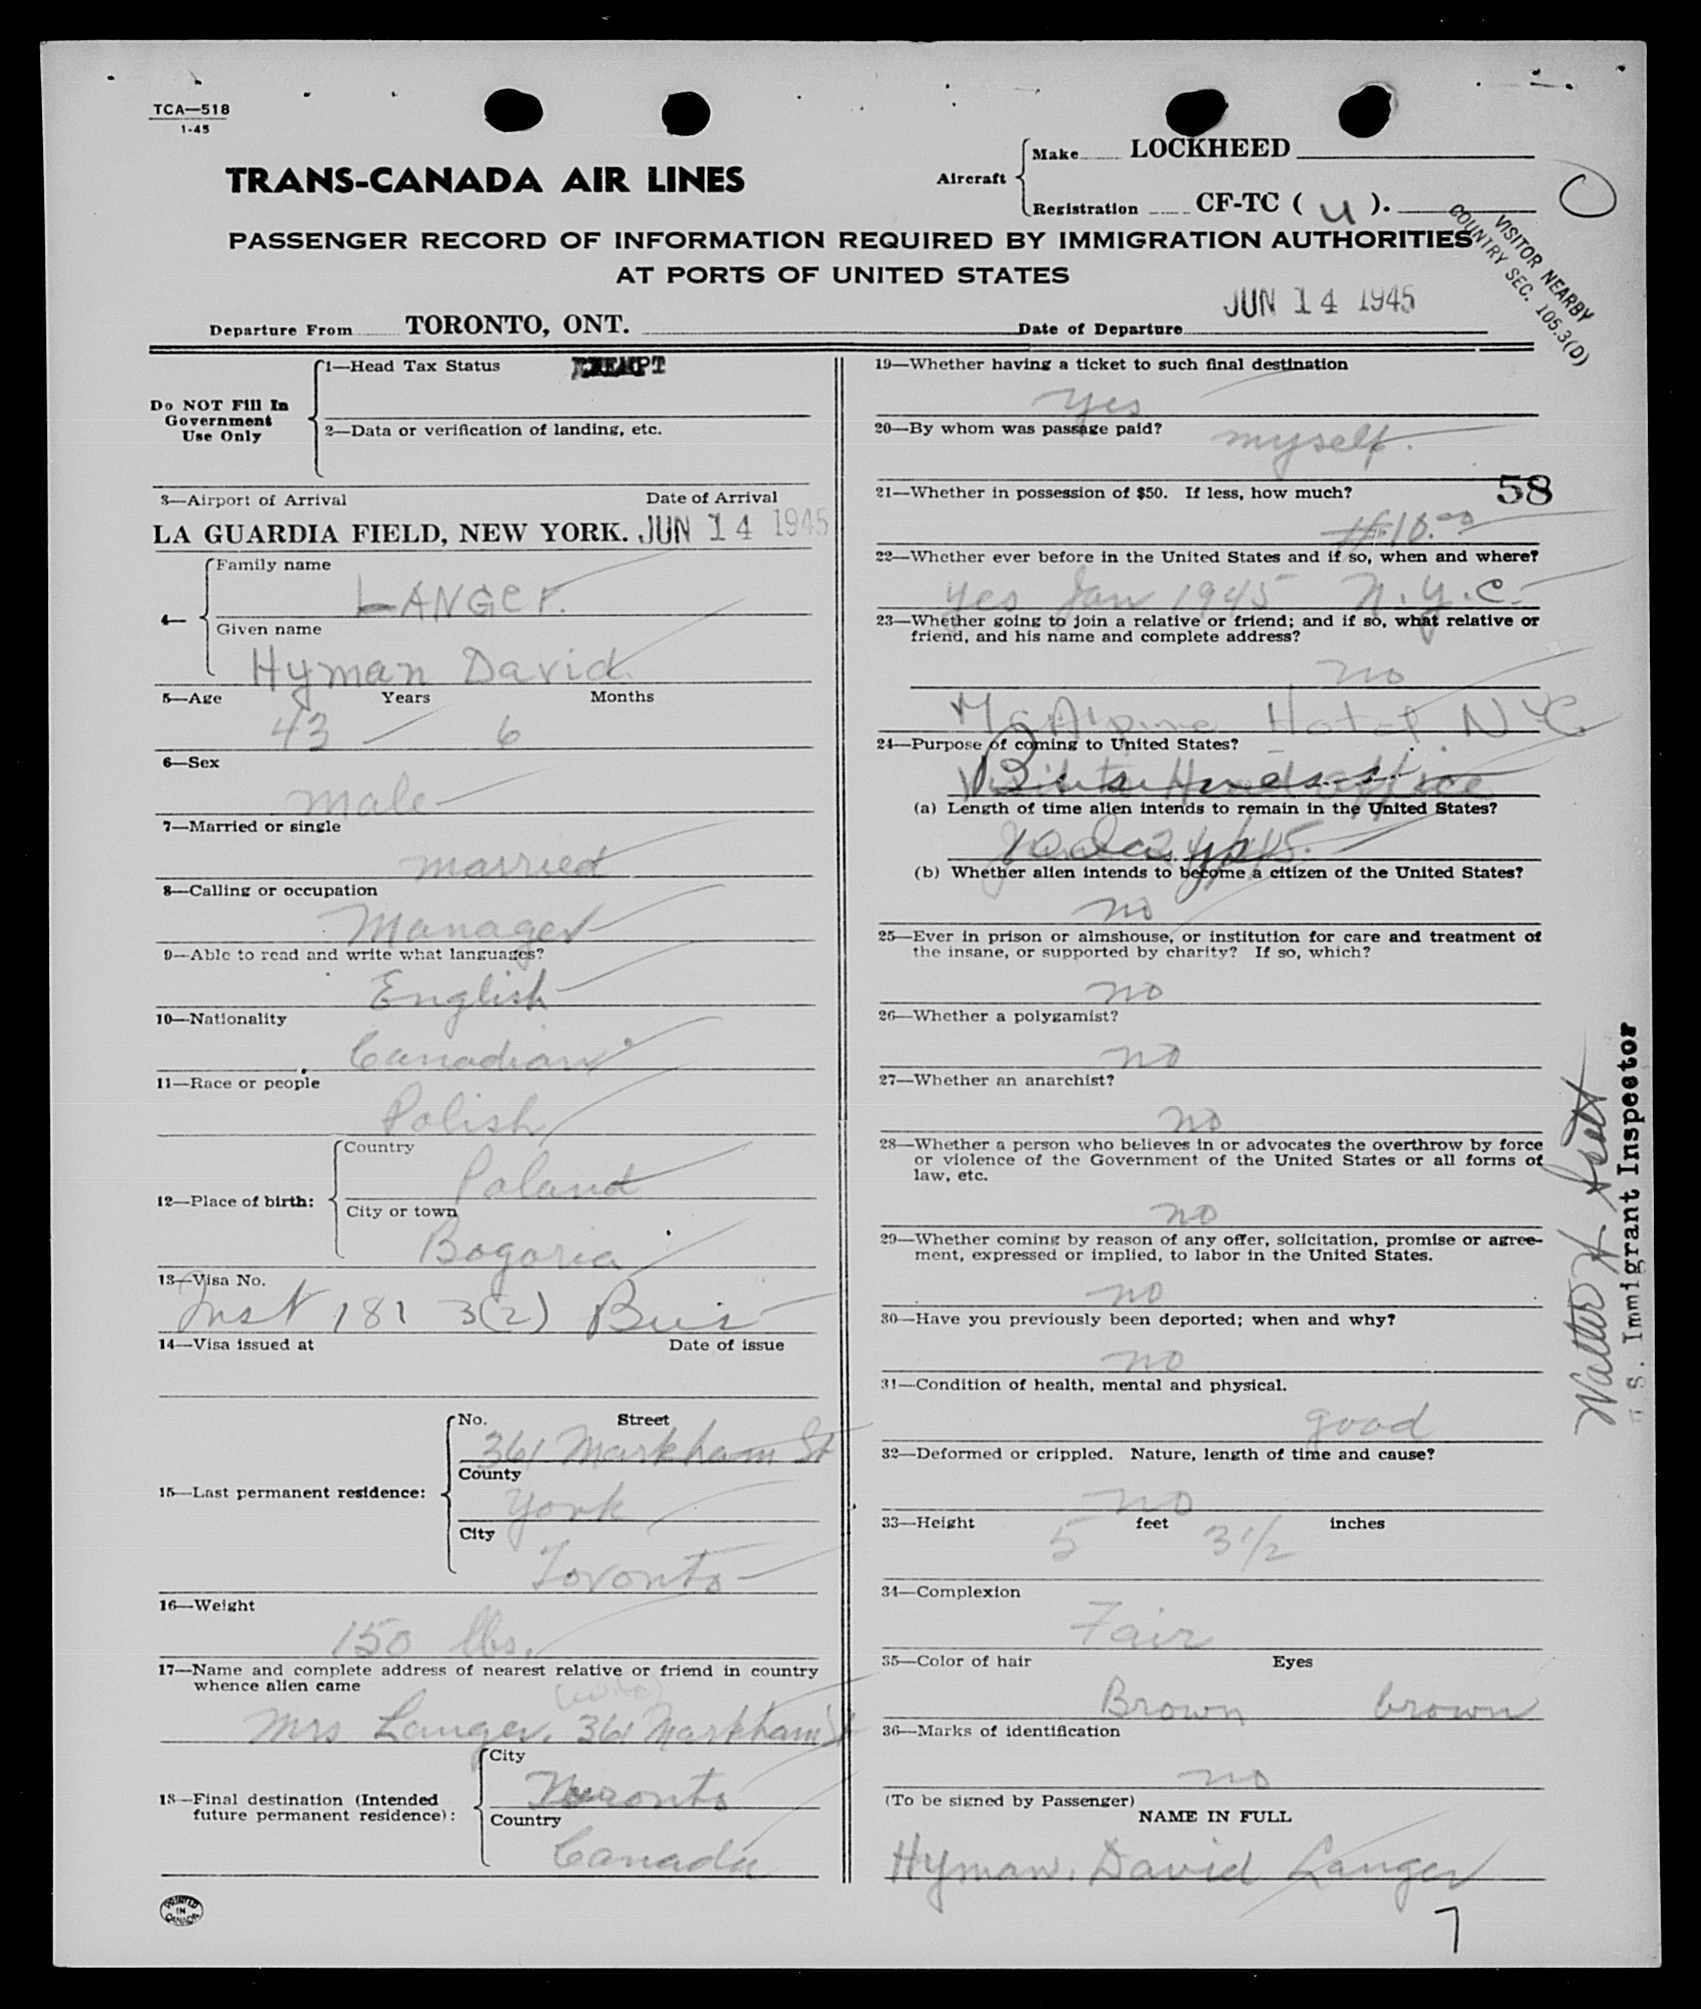 TCA—518
1-45
TRANS-CANADA AIR LINES
Aircraft
Make LOCKHEED
Registration CF-TC ( u ).
PASSENGER RECORD OF INFORMATION REQUIRED BY IMMIGRATION AUTHORITIES
AT PORTS OF UNITED STATES
VISITOR NEARBY
COUNTRY SEC. 105.3(D)
Departure From TORONTO, ONT. Date of Departure JUN 14 1945
Do NOT Fill In
Government
Use Only
1—Head Tax Status EXEMPT
2—Data or verification of landing, etc.
3—Airport of Arrival Date of Arrival
LA GUARDIA FIELD, NEW YORK. JUN 14 1945
4—
Family name
LANGEr.
Given name
Hyman David
5—Age Years Months
43 — 6
6—Sex
male
7—Married or single
married
8—Calling or occupation
Manager
9—Able to read and write what languages?
English
10—Nationality
Canadian
11—Race or people
Polish
12—Place of birth:
Country
Poland
City or town
Bogoria
13—Visa No.
Inst 181 3(2) Bus
14—Visa issued at Date of issue
15—Last permanent residence:
No. Street
361 Markham St
County
York
City
Toronto
16—Weight
150 lbs.
17—Name and complete address of nearest relative or friend in country
whence alien came
(wife)
Mrs Langer. 361 Markham St
18—Final destination (Intended
future permanent residence):
City
Toronto
Country
Canada
PRINTED
IN
CANADA
19—Whether having a ticket to such final destination
yes
20—By whom was passage paid?
myself.
21—Whether in possession of $50. If less, how much?
58
$10.00
22—Whether ever before in the United States and if so, when and where?
yes Jan 1945 N.Y.C.
23—Whether going to join a relative or friend; and if so, what relative or
friend, and his name and complete address?
no
McAlpine Hotel NYC
24—Purpose of coming to United States?
Business
(a) Length of time alien intends to remain in the United States?
(b) Whether alien intends to become a citizen of the United States?
no
25—Ever in prison or almshouse, or institution for care and treatment of
the insane, or supported by charity? If so, which?
no
26—Whether a polygamist?
no
27—Whether an anarchist?
no
28—Whether a person who believes in or advocates the overthrow by force
or violence of the Government of the United States or all forms of
law, etc.
no
29—Whether coming by reason of any offer, solicitation, promise or agree-
ment, expressed or implied, to labor in the United States.
no
30—Have you previously been deported; when and why?
no
31—Condition of health, mental and physical.
good
32—Deformed or crippled. Nature, length of time and cause?
no
33—Height feet inches
5 3 1/2
34—Complexion
Fair
35—Color of hair Eyes
Brown brown
36—Marks of identification
no
(To be signed by Passenger)
NAME IN FULL
Hyman David Langer
7
Walter H
U S. Immigrant Inspector